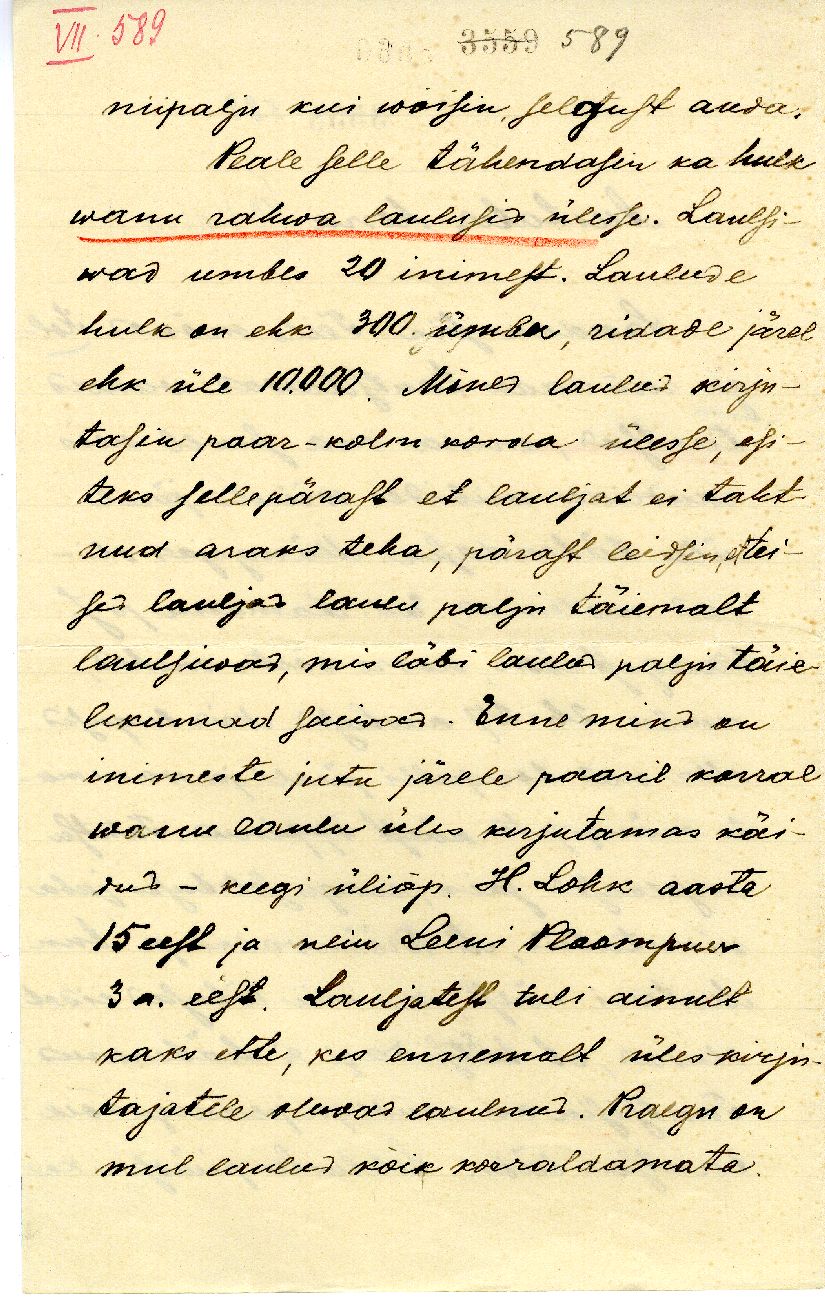 VII 589 3559 589
niipalju kui wõisin, selgust anda.
Peale selle tähendasin ka hulk
wanu rahwa laulusid ülesse. Laulsi-
wad umbes 20 inimest. Laulude
hulk on ehk 300 ümber, ridade järel
ehk üle 10.000. Mõned laulud kirju-
tasin paar-kolm korda ülesse, esi-
teks sellepärast et lauljat ei taht
nud araks teha, pärast leidsin, et tei-
sed lauljad laulu palju täiemalt
laulsiwad, mis läbi laulud palju täie-
likumad saiwad. Enne mind on
inimeste jutu järele paaril korral
wanu laulu üles kirjutamas käi-
dud – keegi üliõp. H. Lohk aasta
15 eest ja neiu Leeni Ploompuu
3 a. eest. Lauljatest tuli ainult
kaks ette, kes ennemalt üleskirju-
tajatele olewad laulnud. Praegu on
mul laulud kõik korraldamata.